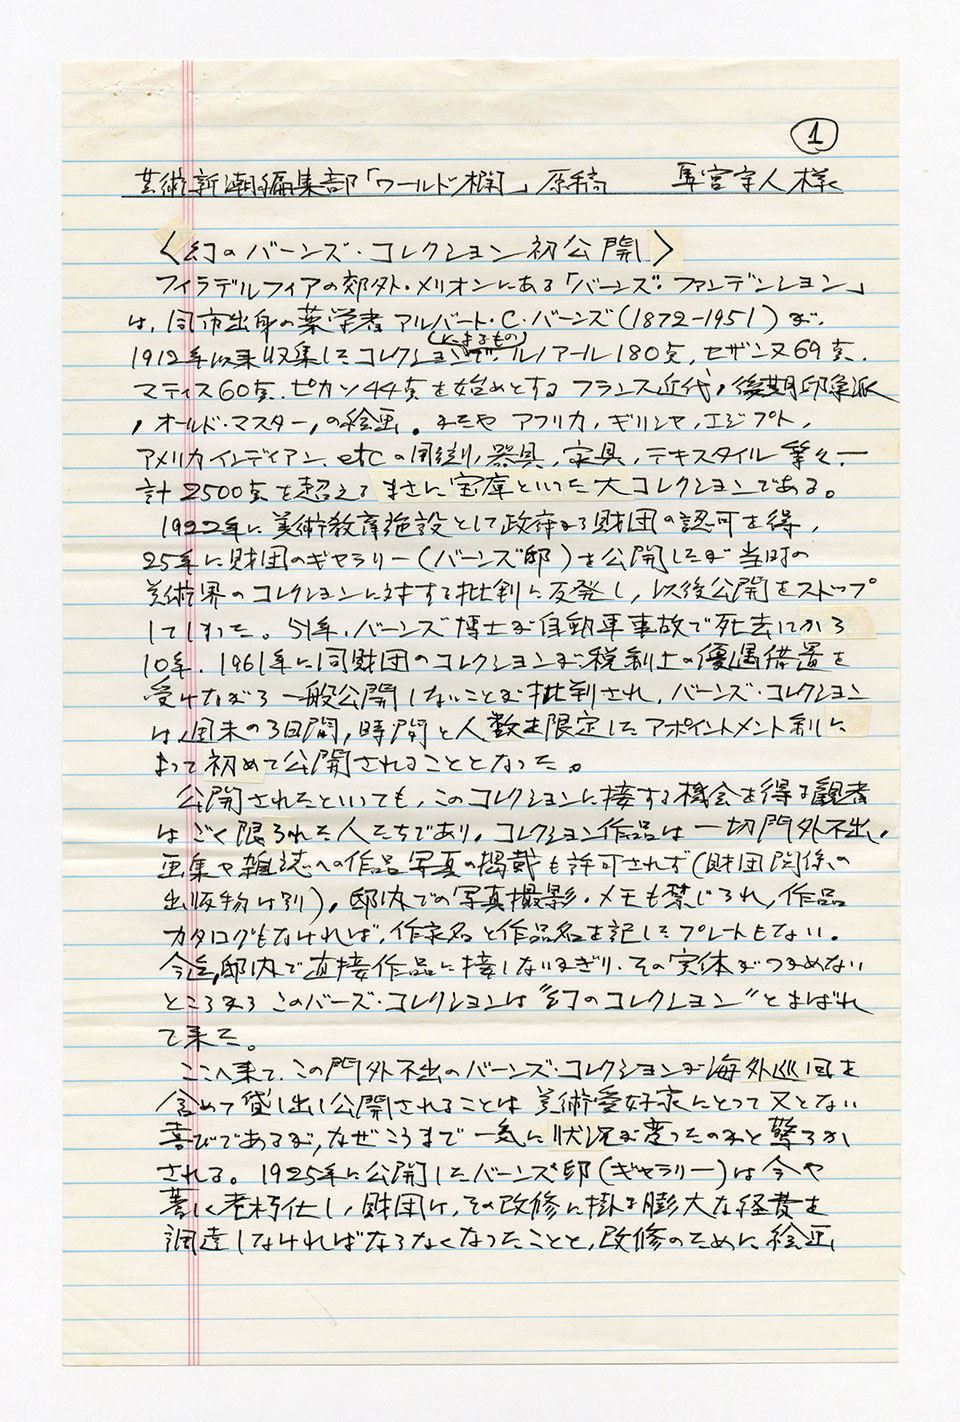 1
芸術新潮編集部「ワールド欄」原稿 馬宮守人様
〈幻のバーンズ・コレクション初公開〉
フィラデルフィアの郊外・メリオンにある「バーンズ・ファンデンション」
は、同市出身の薬学者アルバート・C・バーンズ(1872-1951)が、
1912年以来収集したコレクション(によるもの)で、ルノアール180点,セザンヌ69点,
マティス60点,ピカソ44点を始めとするフランス近代,後期印象派
,オールド・マスター,の絵画。それやアフリカ,ギリシャ,エジプト,
アメリカインディアン,etcの彫刻,器具,家具,テキスタイル等々—
計2500点を超えるまさに宝庫といった大コレクションである。
1922年に美術教育施設として政府から財団の認可を得,
25年に財団のギャラリー(バーンズ邸)を公開したが当時の
美術界のコレクションに対する批判に反発し,以後公開をストップ
してしまった。51年,バーンズ博士が自動車事故で死去してから
10年,1961年に同財団のコレクションが税制上の優遇措置を
受けながら一般公開しないことが批判され,バーンズ・コレクション
は,週末の3日間,時間と人数を限定したアポイントメント制に
よって初めて公開されることとなった。
公開されたといっても,このコレクションに接する機会を得る観者
はごく限られた人たちであり,コレクション作品は一切門外不出,
画集や雑誌への作品写真の掲載も許可されず(財団関係の
出版物は別),邸内での写真撮影・メモも禁じられ,作品
カタログもなければ,作家名と作品名を記したプレートもない。
今迄,邸内で直接作品に接しないかぎり,その実体がつかめない
ところからこのバーズ・コレクションは"幻のコレクション"とよばれ
て来た。
ここへ来て,この門外不出のバーンズ・コレクションが海外巡回を
含めて貸し出し公開されることは美術愛好家にとって又とない
喜びであるが,なぜころまで一気に状況が変ったのかと驚ろか
される。1925年に公開したバーンズ邸(ギャラリー)は今や
著しく老朽化し,財団は,その改修に掛る膨大な経費を
調達しなければならなくなったことと,改修のために絵画